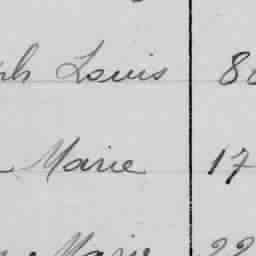 Louis
Marie 17
Marie 22